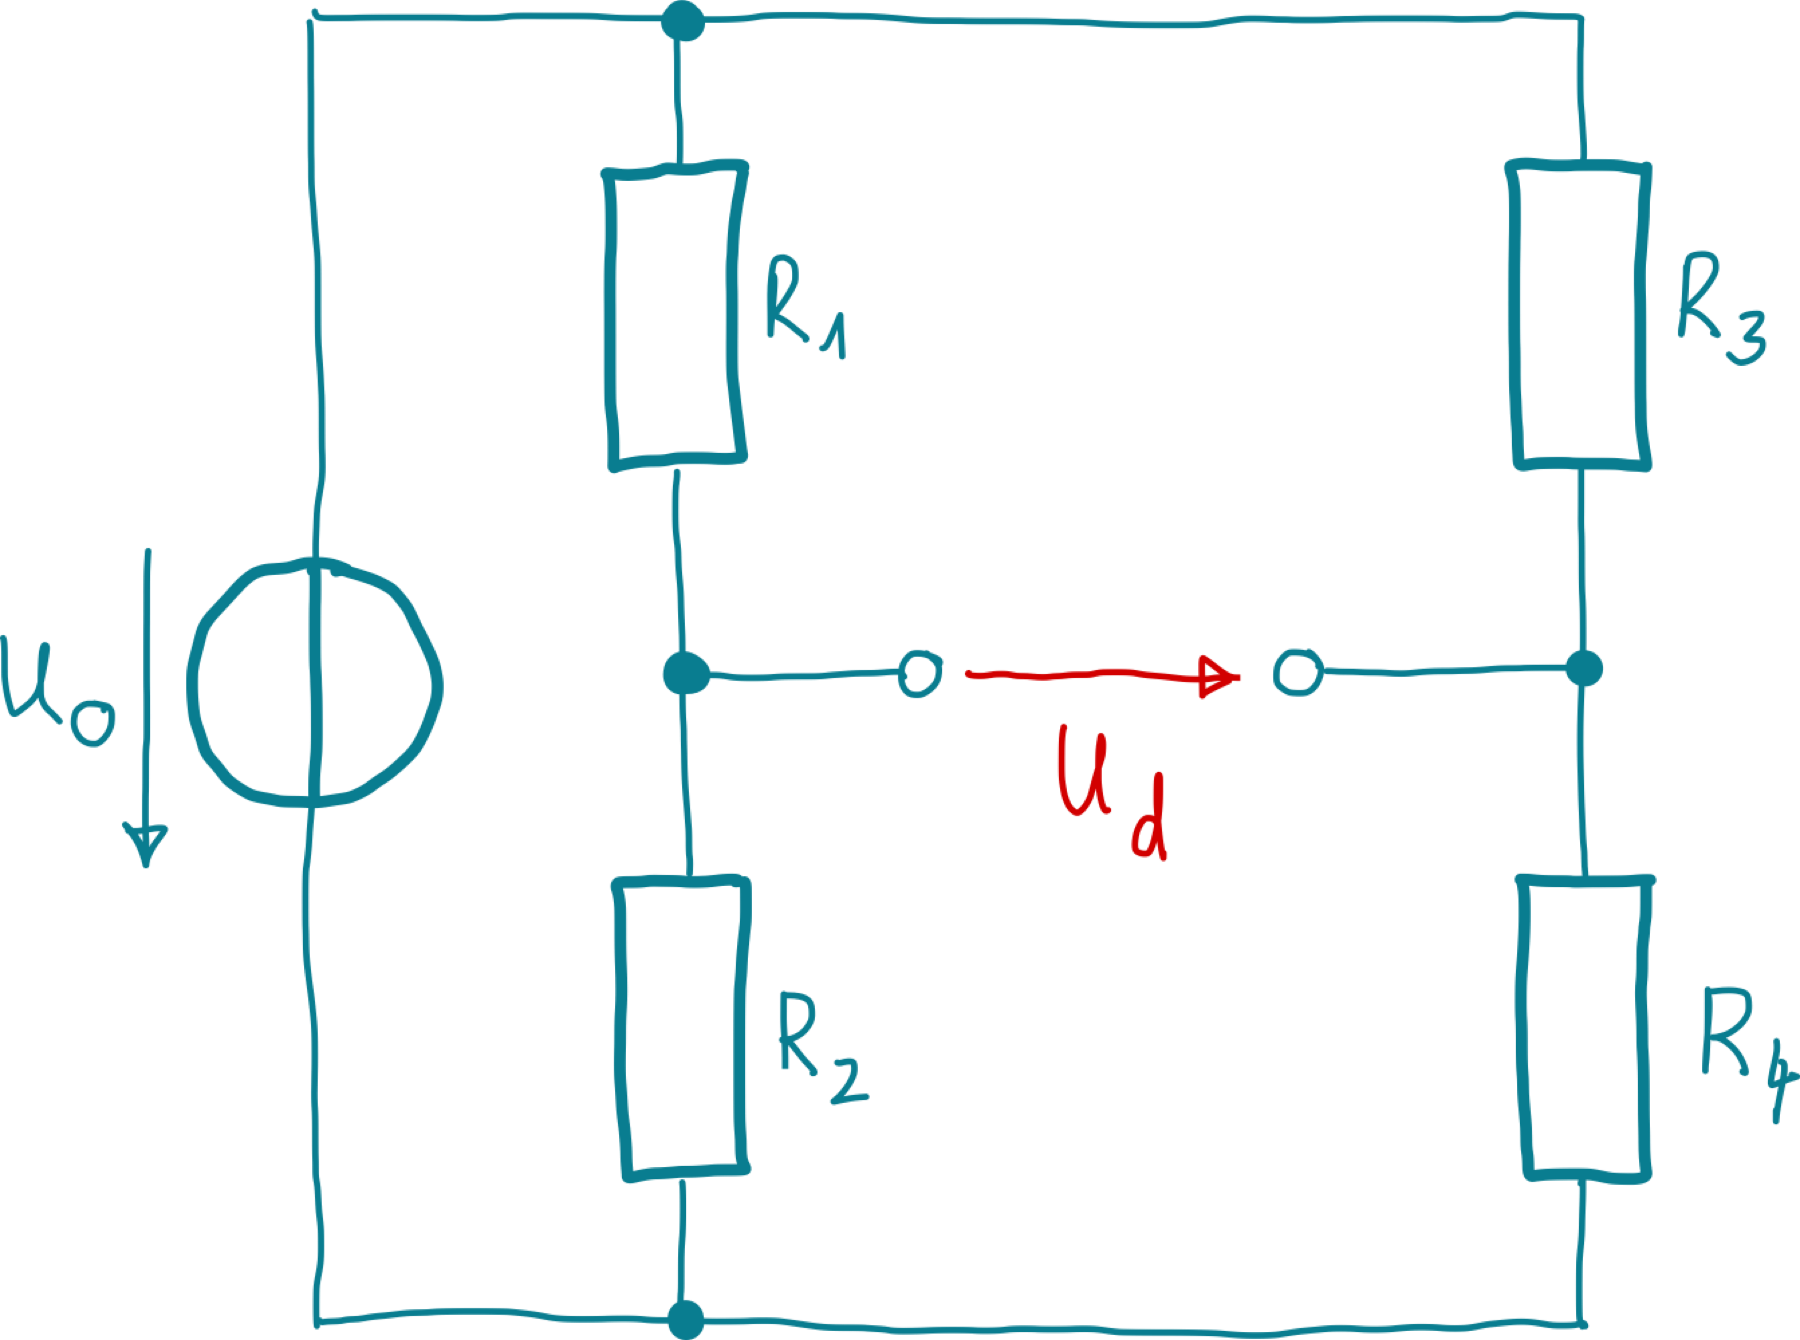 R1
R3
U0
Ud
R2
R4